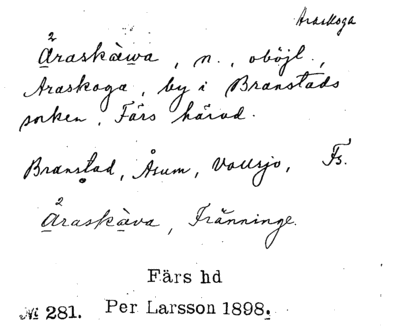 Araskoga
2
Äraskàẁa, n., oböjl.,
Araskoga, by i Branstads
socken, Färs härad.
Branstad, Åsum, Vollsjo, Fs.
2
Äraskàva, Tränninge.
Färs hd
№ 281. Per Larsson 1898.